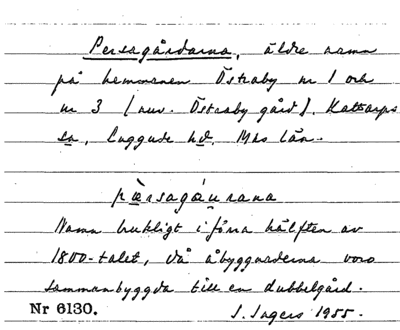 Persagårdarna, äldre namn
på hemmanen Östraby nr 1 och
nr 3 (nuv. Östraby gård). Kattarps
sn, Luggude hd, Mhs län.
pæ̀rsagáurana
Namn brukligt i förra hälften av
1800-talet, då åbyggnaderna voro
sammanbyggda till en dubbelgård.
Nr 6130. S. Ingers 1955.